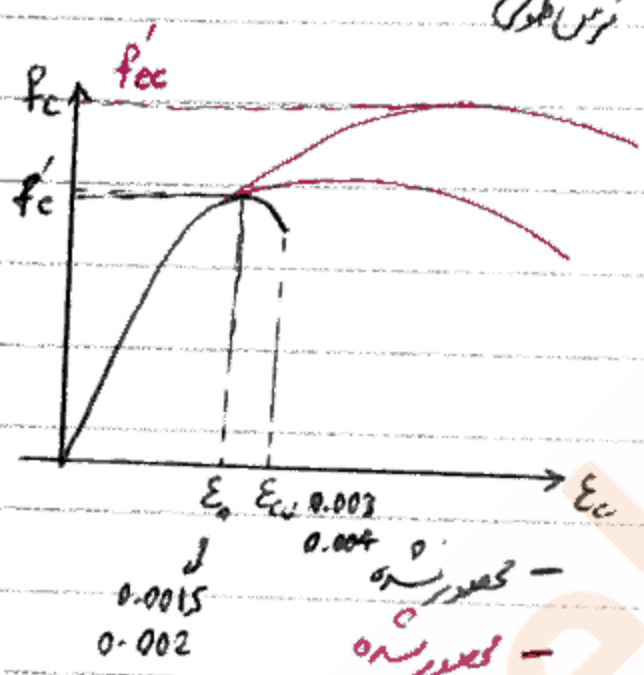 فرض طولی
f'cc
fc
f'c
ε₀ εcu 0.003
εc
0.004
0.0015
0.002
محصور نشده -
محصور شده -